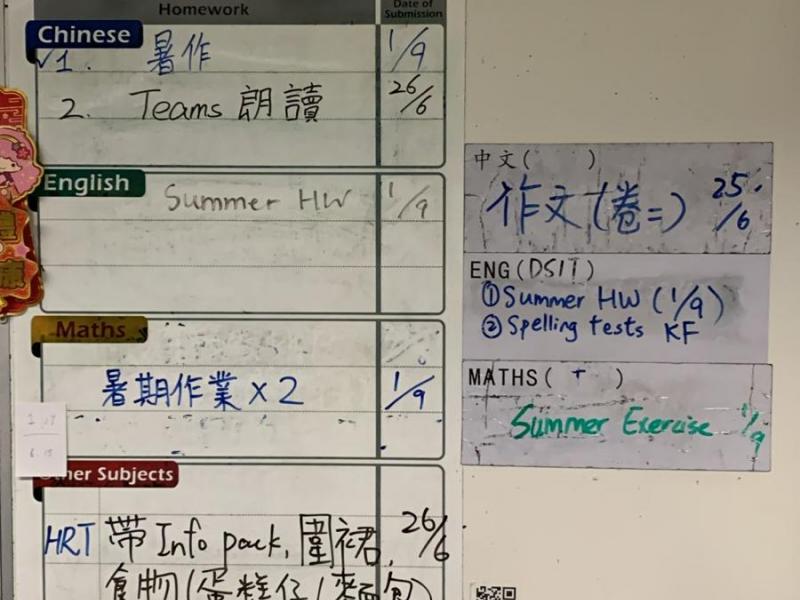 Homework
Date of Submission
Chinese
✓1. 暑作 1/9
2. Teams 朗讀 26/6
English
Summer HW 1/9
Maths
暑期作業 x 2 1/9
Other Subjects
HRT 帶 Info pack, 圍裙, 26/6
食物(蛋糕仔/麵包)
中文( )
作文(卷二) 25/6
ENG(DSIT)
① Summer HW (1/9)
② Spelling tests KF
MATHS( + )
Summer Exercise 1/9